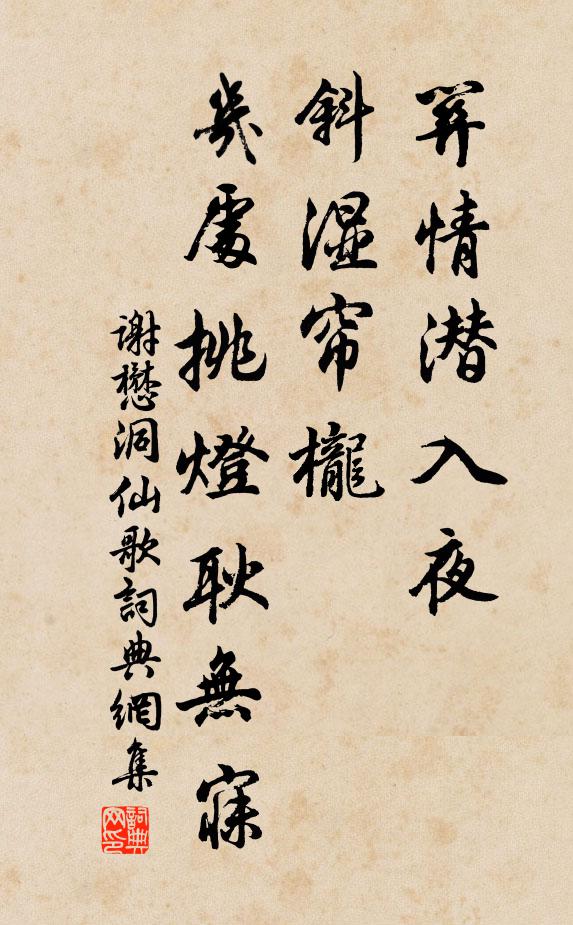 筭情潜入夜
斜湿帘櫳
幾處挑燈耿無寐
謝懋洞仙歌詞典網集
詞典网印